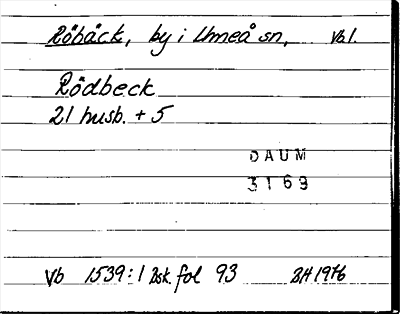 Röbäck, by i Umeå sn, Vb l.
Rödbeck
21 husb. + 5
DAUM
3169
Vb 1539:1 Bsk. fol 93 BH 1976